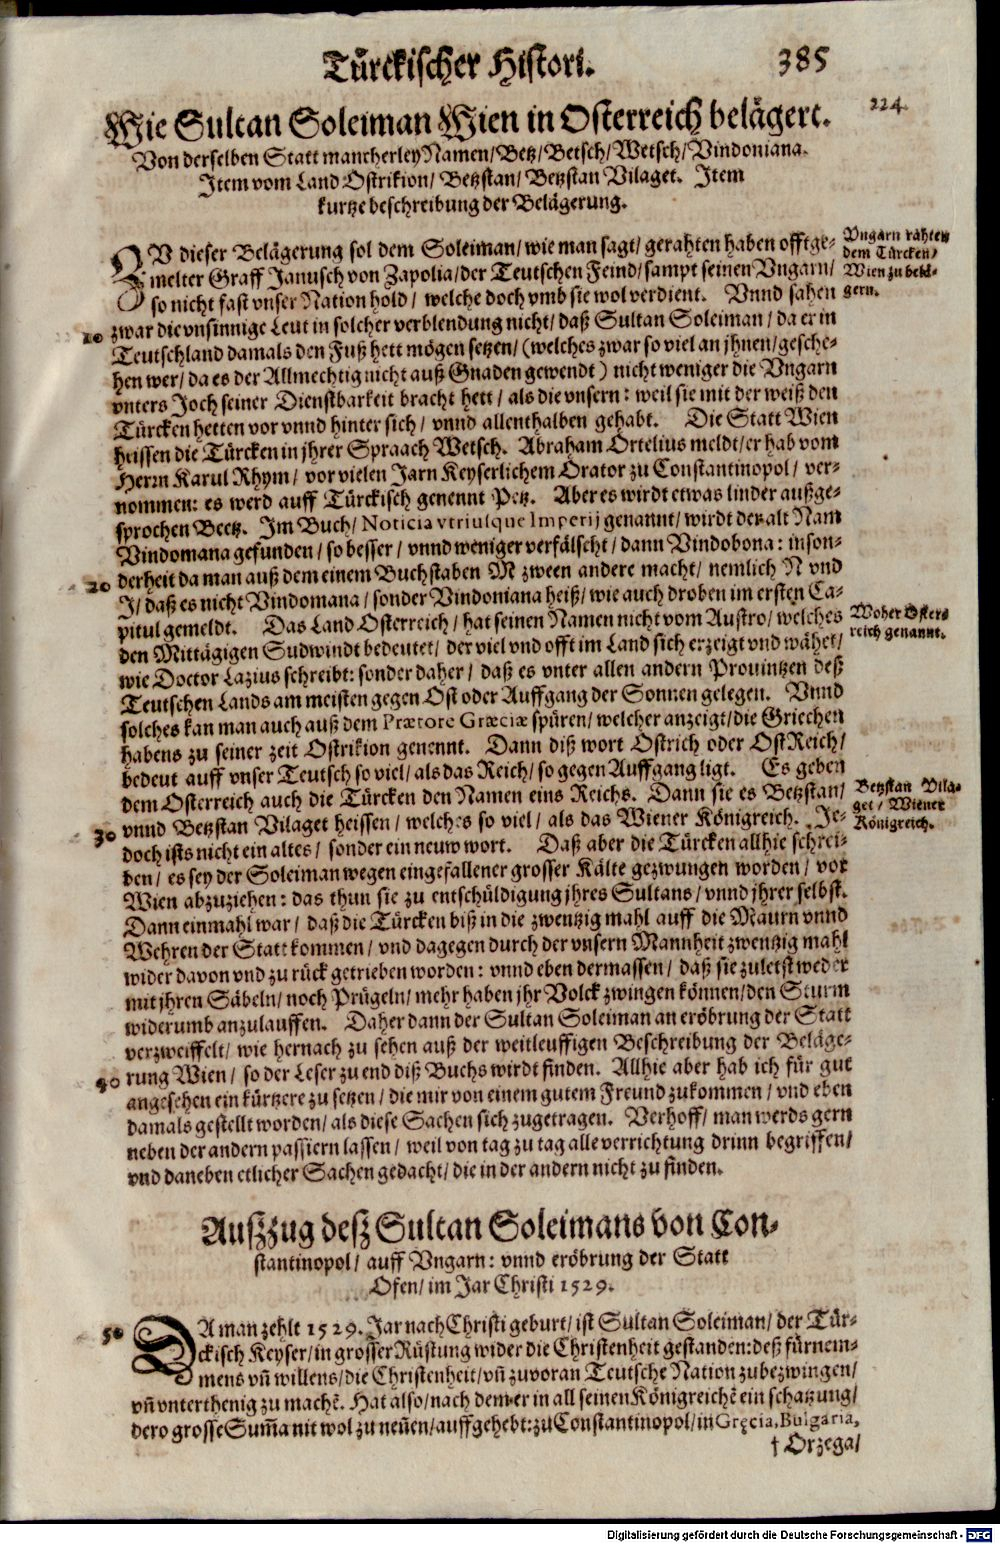 Türckischer Histori.
385
Wie Sultan Soleiman Wien in Osterreich belägert.
224.
Von derselben Statt mancherley Namen/ Betz/ Betsch/ Wetsch/ Vindoniana.
Item vom Land Ostrikion/ Betzstan/ Betzstan Vilaget. Item
kurtze beschreibung der Belägerung.
ZV dieser Belägerung sol dem Soleiman/ wie man sagt/ gerahten haben offtge-
melter Graff Janusch von Zapolia/ der Teutschen Feind/ sampt seinen Vngarn/
so nicht fast vnser Nation hold/ welche doch vmb sie wol verdient. Vnnd sahen
Vngarn rahten
dem Türcken/
Wien zu belä-
gern.
10
zwar die vnsinnige Leut in solcher verblendung nicht/ daß Sultan Soleiman/ da er in
Teutschland damals den Fuß hett mögen setzen/ (welches zwar so viel an jhnen/ gesche-
hen wer/ da es der Allmechtig nicht auß Gnaden gewendt) nicht weniger die Vngarn
vnters Joch seiner Dienstbarkeit bracht hett/ als die vnsern: weil sie mit der weiß den
Türcken hetten vor vnnd hinter sich/ vnnd allenthalben gehabt. Die Statt Wien
heissen die Türcken in jhrer Spraach Wetsch. Abraham Ortelius meldt/ er hab vom
Herrn Karul Rhym/ vor vielen Jarn Keyserlichem Orator zu Constantinopol/ ver-
nommen: es werd auff Türckisch genennt Petz. Aber es wirdt etwas linder außge-
sprochen Beetz. Im Buch/ Noticia vtriusque Imperij genannt/ wirdt der alt Nam
Vindomana gefunden/ so besser/ vnnd weniger verfälscht/ dann Vindobona: inson-
20
derheit da man auß dem einem Buchstaben M zween andere macht/ nemlich N vnd
I/ daß es nicht Vindomana/ sonder Vindoniana heiß/ wie auch droben im ersten Ca-
pitul gemeldt. Das Land Osterreich/ hat seinen Namen nicht vom Austro/ welches
den Mittägigen Sudwindt bedeutet/ der viel vnd offt im Land sich erzeigt vnd wähet/
Woher Oster-
reich genannt.
wie Doctor Lazius schreibt: sonder daher/ daß es vnter allen andern Prouintzen deß
Teutschen Lands am meisten gegen Ost oder Auffgang der Sonnen gelegen. Vnnd
solches kan man auch auß dem Prætore Græciæ spüren/ welcher anzeigt/ die Griechen
habens zu seiner zeit Ostrikion genennt. Dann diß wort Ostrich oder OstReich/
bedeut auff vnser Teutsch so viel/ als das Reich/ so gegen Auffgang ligt. Es geben
dem Osterreich auch die Türcken den Namen eins Reichs. Dann sie es Betzstan/
30
vnnd Betzstan Vilaget heissen/ welches so viel/ als das Wiener Königreich. Je-
Betzstan Vila-
get/ Wiener
Königreich.
doch ists nicht ein altes/ sonder ein neuw wort. Daß aber die Türcken allhie schrei-
ben/ es sey der Soleiman wegen eingefallener grosser Kälte gezwungen worden/ vor
Wien abzuziehen: das thun sie zu entschüldigung jhres Sultans/ vnnd jhrer selbst.
Dann einmahl war/ daß die Türcken biß in die zwentzig mahl auff die Maurn vnnd
Wehren der Statt kommen/ vnd dagegen durch der vnsern Mannheit zwentzig mahl
wider davon vnd zu rück getrieben worden: vnnd eben dermassen/ daß sie zuletst weder
mit jhren Säbeln/ noch Prügeln/ mehr haben jhr Volck zwingen können/ den Sturm
widerumb anzulauffen. Daher dann der Sultan Soleiman an eröbrung der Statt
verzweiffelt/ wie hernach zu sehen auß der weitleuffigen Beschreibung der Beläge-
40
rung Wien/ so der Leser zu end diß Buchs wirdt finden. Allhie aber hab ich für gut
angesehen ein kürtzere zu setzen/ die mir von einem gutem Freund zukommen/ vnd eben
damals gestellt worden/ als diese Sachen sich zugetragen. Verhoff/ man werds gern
neben der andern passiern lassen/ weil von tag zu tag alle verrichtung drinn begriffen/
vnd daneben etlicher Sachen gedacht/ die in der andern nicht zu finden.
Auszzug desz Sultan Soleimans von Con-
stantinopol/ auff Vngarn: vnnd eröbrung der Statt
Ofen/ im Jar Christi 1529.
50
DA man zehlt 1529. Jar nach Christi geburt/ ist Sultan Soleiman/ der Tür-
ckisch Keyser/ in grosser Rüstung wider die Christenheit gestanden: deß fürnem-
mens vñ willens/ die Christenheit/ vñ zuvoran Teutsche Nation zubezwingen/
vñ vnterthenig zu machẽ. Hat also/ nach dem er in all seinen Königreichẽ ein schatzung/
dero grosse Sum̃a nit wol zu neñen/ auffgehebt: zu Constantinopol/ in Gręcia, Bulgaria,
† Orzega/
Digitalisierung gefördert durch die Deutsche Forschungsgemeinschaft - DFG